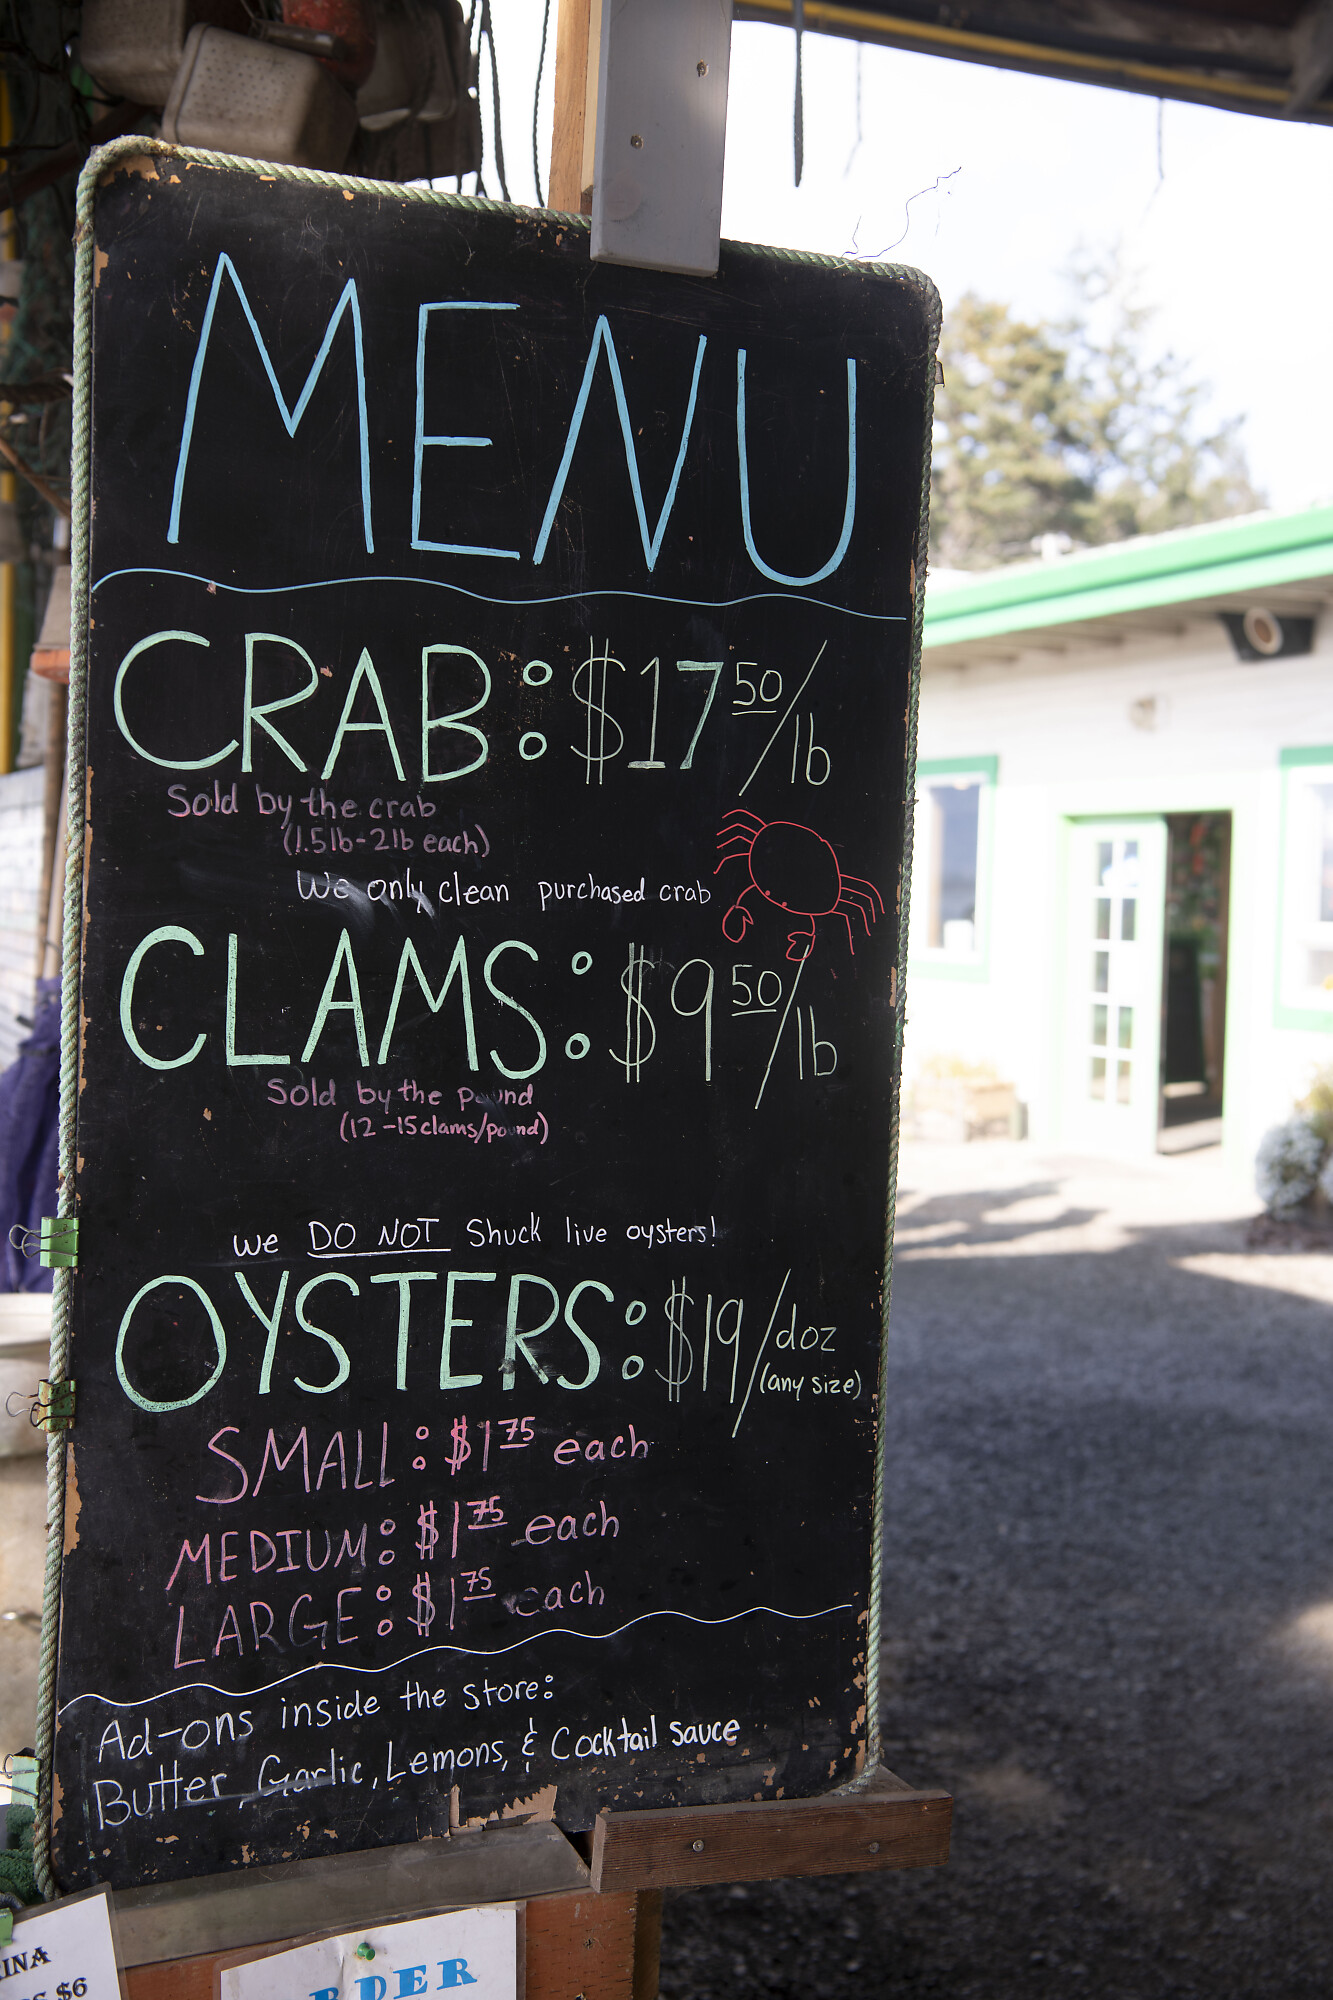 MENU
CRAB: $17 50/lb
Sold by the crab
(1.5lb-2lb each)
We only clean purchased crab
CLAMS: $9 50/lb
Sold by the pound
(12-15clams/pound)
We DO NOT Shuck live oysters!
OYSTERS: $19/doz
(any size)
SMALL: $1 75 each
MEDIUM: $1 75 each
LARGE: $1 75 each
Ad-ons inside the store:
Butter, Garlic, Lemons, & Cocktail sauce
$6